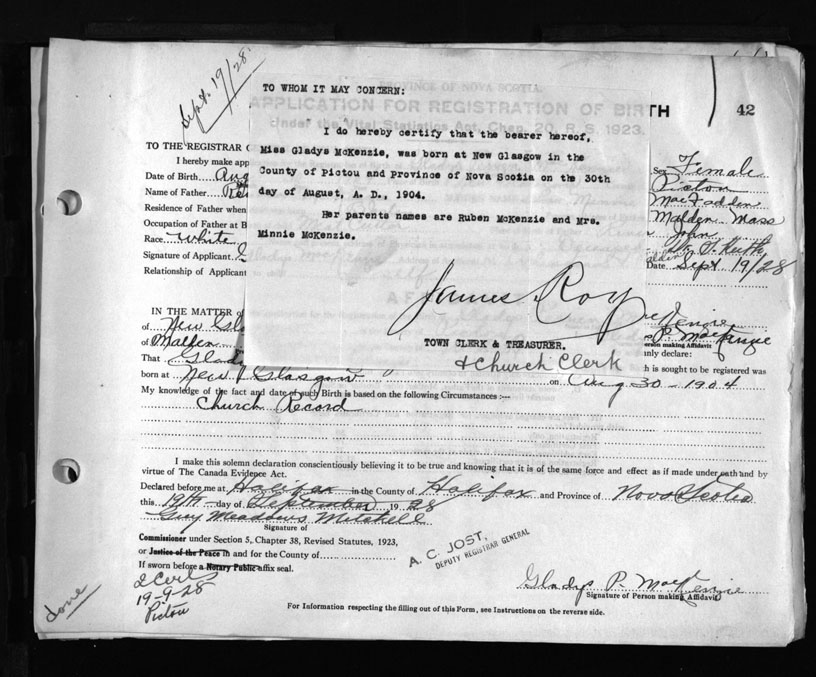 Sept. 19/28.
TO WHOM IT MAY CONCERN:
PROVINCE OF NOVA SCOTIA
APPLICATION FOR REGISTRATION OF BIRTH
42
Under the Vital Statistics Act, Chap. 20, R. S. 1923.
I do hereby certify that the bearer hereof,
Miss Gladys McKenzie, was born at New Glasgow in the
County of Pictou and Province of Nova Scotia on the 30th
day of August, A. D., 1904.
Her parents names are Ruben McKenzie and Mrs.
Minnie McKenzie.
James Roy
TOWN CLERK & TREASURER.
& Church Clerk
TO THE REGISTRAR
I hereby make app
Date of Birth Aug
Name of Father
Residence of Father when
Occupation of Father at B
Race White
Signature of Applicant
Relationship of Applicant
Sex Female
Pictou
MacFadden
Malden Mass
John
Date Sept 19/28
IN THE MATTER OF
of New Gla
of Malden
P. MacKenzie
Person making Affidavit
That Glad
nly declare:
h is sought to be registered was
born at New Glasgow " on Aug 30 - 1904
My knowledge of the fact and date of such Birth is based on the following Circumstances :—
Church Record
I make this solemn declaration conscientiously believing it to be true and knowing that it is of the same force and effect as if made under oath and by
virtue of The Canada Evidence Act.
Declared before me at Halifax in the County of Halifax and Province of Nova Scotia
this 19th day of September 1928
Guy Meadows Mitchell
Signature of
Commissioner under Section 5, Chapter 38, Revised Statutes, 1923,
or Justice of the Peace in and for the County of
If sworn before a Notary Public affix seal.
A. C. JOST,
DEPUTY REGISTRAR GENERAL
2 Certs
19-9-28
Pictou
done
Gladys P. MacKenzie
Signature of Person making Affidavit
For Information respecting the filling out of this Form, see Instructions on the reverse side.